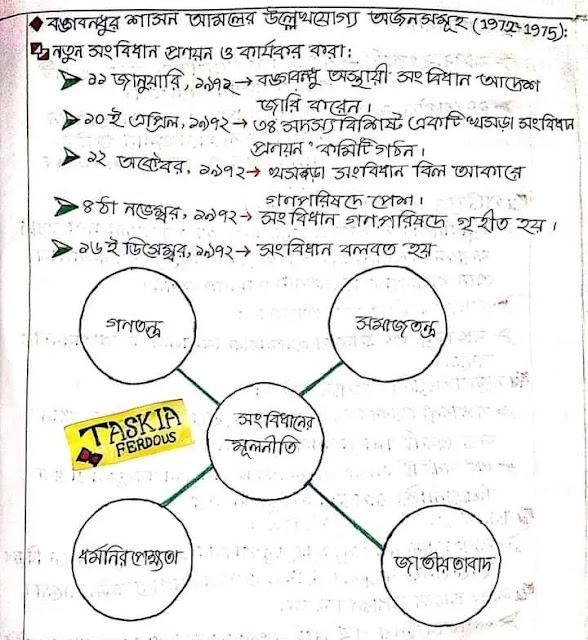 বঙ্গবন্ধুর শাসন আমলের উল্লেখযোগ্য অর্জনসমূহ (1972-1975):
নতুন সংবিধান প্রণয়ন ও কার্যকর করা:
১১ জানুয়ারি, ১৯৭২→ বঙ্গবন্ধু অস্থায়ী সংবিধান আদেশ
জারি করেন।
১০ই এপ্রিল, ১৯৭২→ ৩৪ সদস্যবিশিষ্ট একটি খসড়া সংবিধান
প্রণয়ন কমিটি গঠন।
১২ অক্টোবর, ১৯৭২→ খসড়া সংবিধান বিল আকারে
গণপরিষদে পেশ।
৪ঠা নভেম্বর, ১৯৭২→ সংবিধান গণপরিষদে গৃহীত হয়।
১৬ই ডিসেম্বর, ১৯৭২→ সংবিধান বলবত হয়
গনতন্ত্র
সমাজতন্ত্র
সংবিধানের
মূলনীতি
TASKIA
FERDOUS
ধর্মনিরপেক্ষতা
জাতীয়তাবাদ